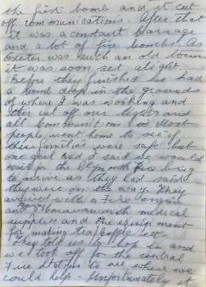 the first bomb and it cut
off communications. After that
it was a constant barrage
and a lot of fire bombs. As
Exeter was such an old town
it was soon set alight.
Before they finished we had
a bomb drop in the grounds
of where I was working and
that cut off our lights and
all communications so most
people went home to see if
their families were safe but
one girl and I said we would
wait for the Plymouth Fire brig
to arrive as they had said
they were on the way. They
arrived with a Fire engine
and a van with medical
supplies and the equipment
for making tea
They told us to hop in and
we took off for the central
Fire Station to see where we
could help. Unfortunately it